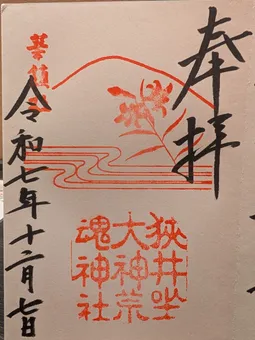 奉拝
狹井坐
大神荒
魂神社
華鎮
令和七年十二月七日